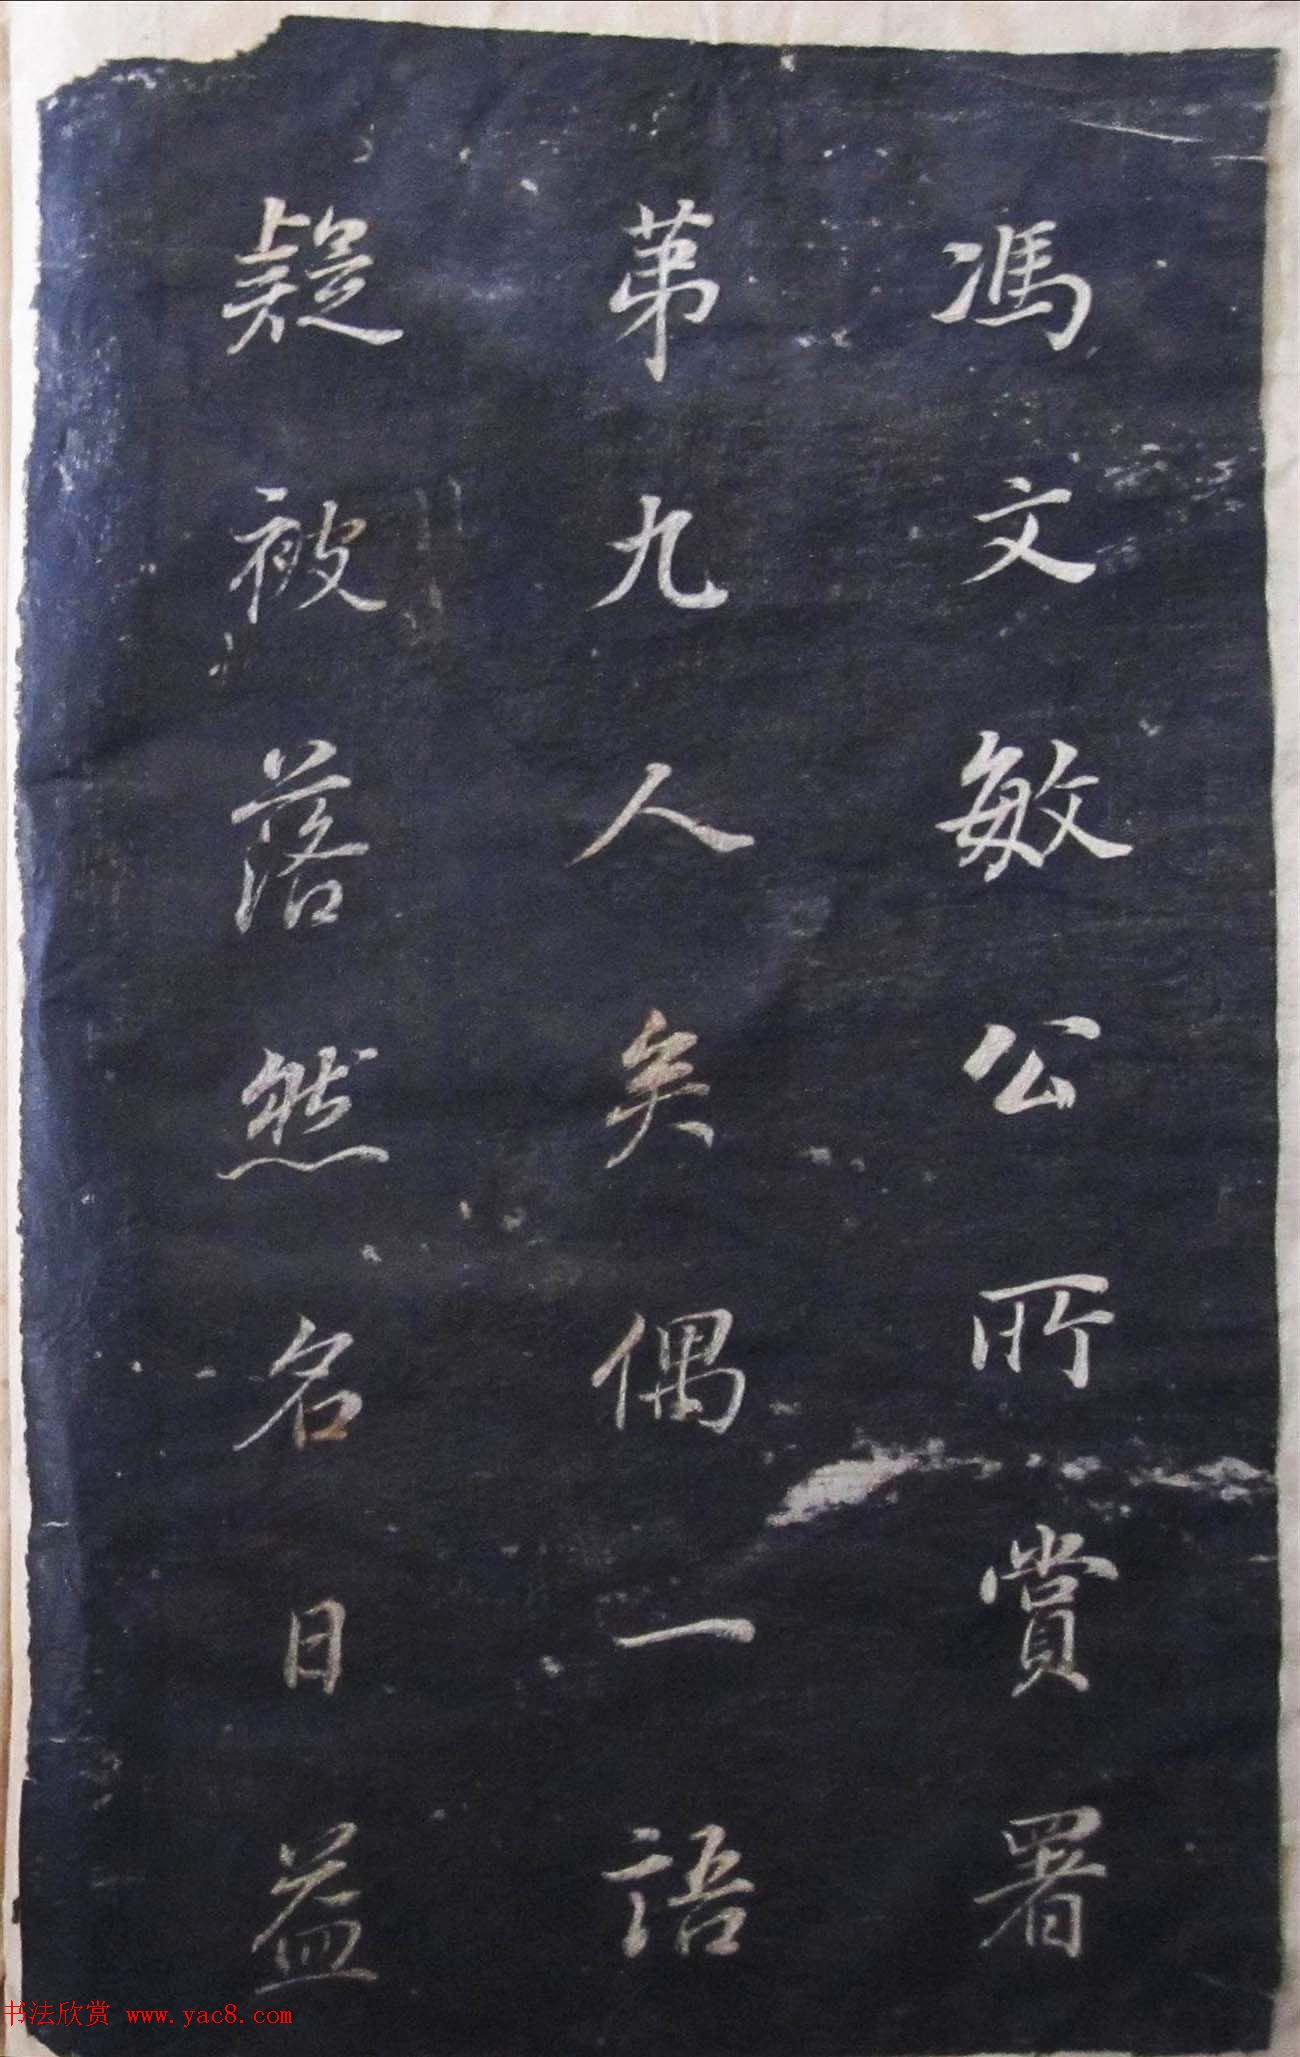 馮文敏公所賞署
苐九人矣偶一語
疑被落然名日益
书法欣赏 www.yac8.com